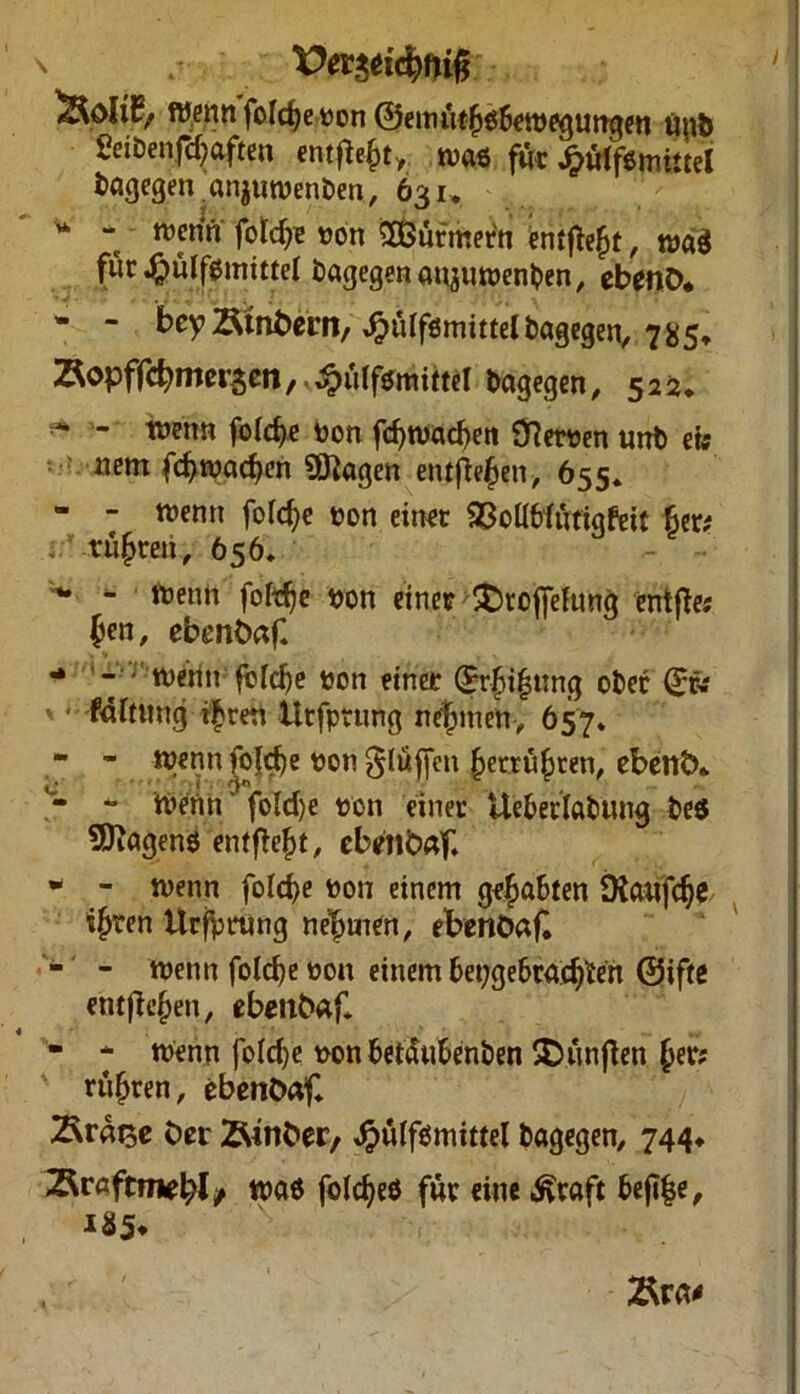 Verzeichniß
Kolik, wenn solche von Gemüthsbewegungen und
Leidenschaften entsteht, was für Hülfsmittel
dagegen anzuwenden, 631.
- - wenn solche von Würmern entsteht, was
für Hülfsmittel dagegen anzuwenden, ebend.
- - bey Kindern, Hülfsmittel dagegen, 785.
Kopfschmerzen, Hülfsmittel dagegen, 522.
- - wenn solche von schwachen Nerven und ei-
nem schwachen Magen entstehen, 655.
- - wenn solche von einer Vollblütigkeit her-
rühren, 656.
- - wenn solche von einer Drosselung entste-
hen, ebendas.
- - wenn solche von einer Erhitzung oder Er-
kältung ihren Ursprung nehmen, 657.
- - wenn solche von Flüssen herrühren, ebend.
- - wenn solche von einer Ueberladung des
Magens entsteht, ebendas.
- - wenn solche von einem gehabten Rausche
ihren Ursprung nehmen, ebendas.
- - wenn solche von einem beygebrachten Gifte
entstehen, ebendas.
- - wenn solche von betäubenden Dünsten her-
rühren, ebendas.
Krätze der Kinder, Hülfsmittel dagegen, 744.
Kraftmehl, was solches für eine Kraft besitze,
185.
Kra-